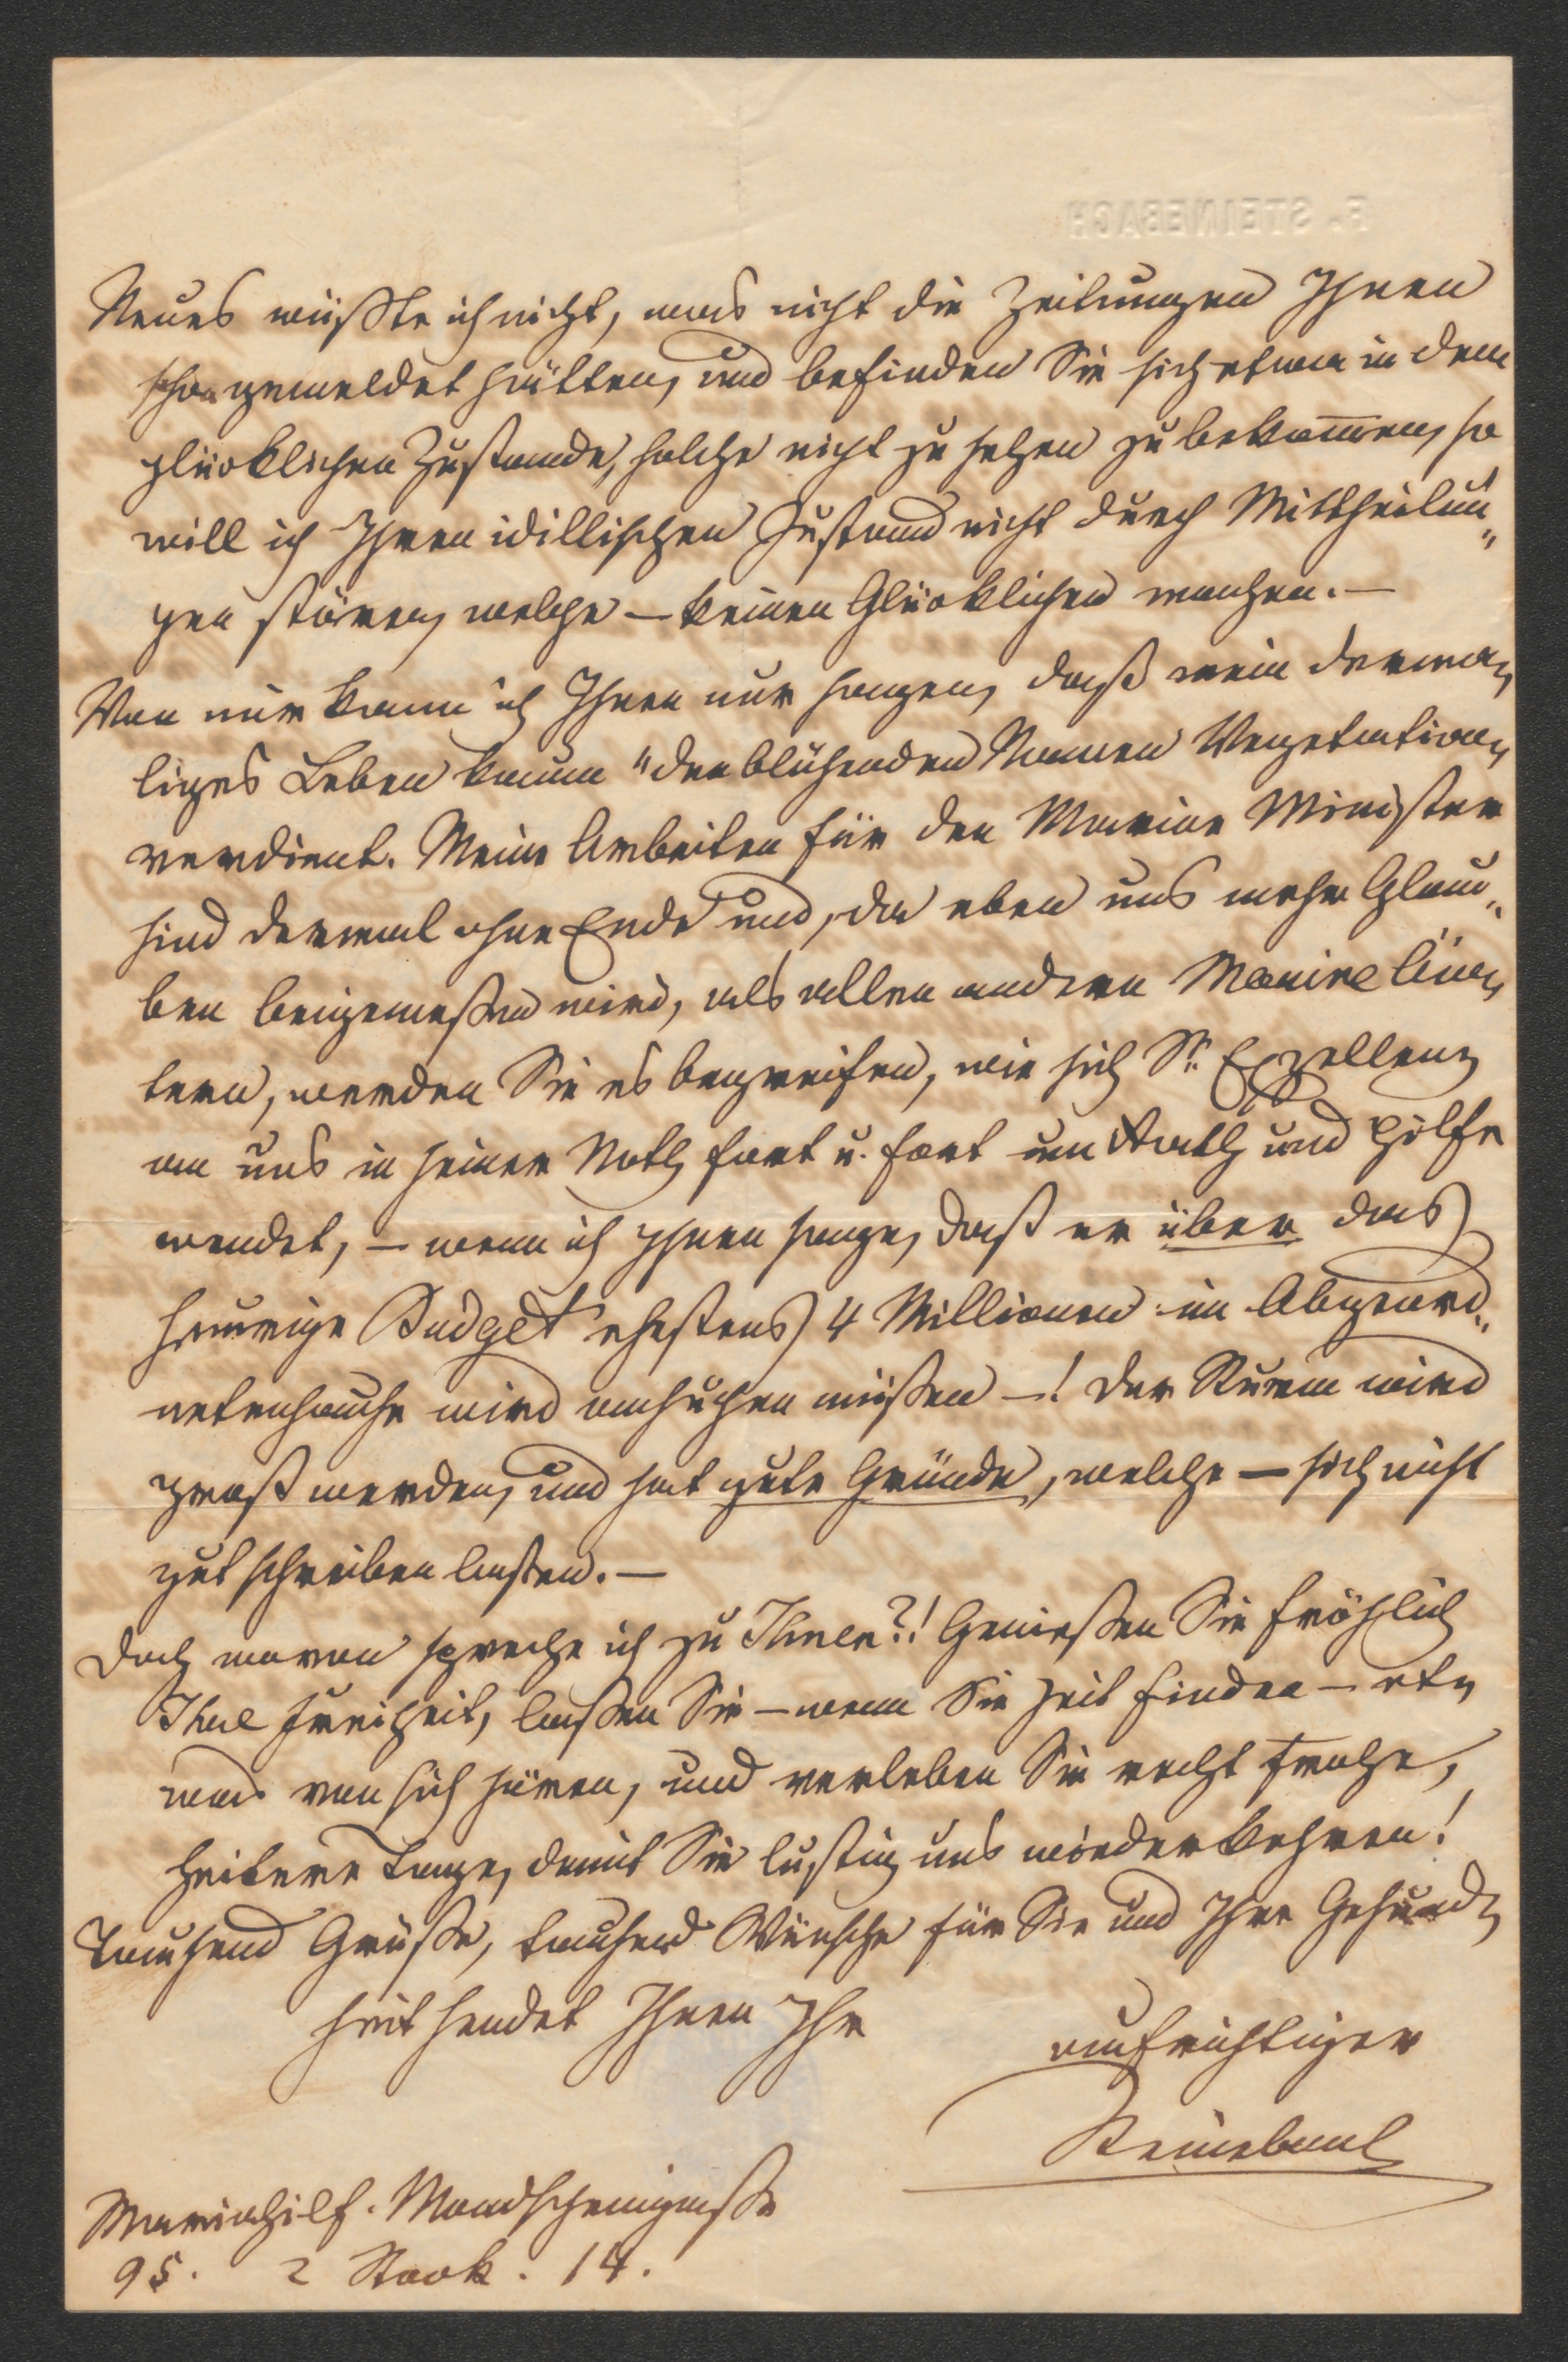 F. STEINEBACH
Neues wüßte ich nicht, was nicht die Zeitungen Ihnen
schon gemeldet hätten, und befinden Sie sich etwa in dem
glücklichen Zustande, solche nicht zu sehen zu bekom̅en, so
will ich Ihren idillischen Zustand nicht durch Mittheilun„
gen stören, welche — keinen Glücklichen machen. —
Von mir kann ich Ihnen nur sagen, daß mein derma„
liges Leben kaum "den blühenden Namen Vegetation„
verdient. Meine Arbeiten für den Marine Minister
sind dermal ohne Ende und, da eben uns mehr Glau„
ben beigemeßen wird, als allen andern Marine
tern, werden Sie es begreifen, wie sich Sr. Exzellenz
an uns in seiner Noth fort u. fort um Rath und Hilfe
wendet, — wenn ich Ihnen sage, daß er über das
heurige Budget ehestens 4 Millionen im Abgeord„
netenhause wird ansuchen müßen —! Der Sturm wird
groß werden, und hat gute Gründe, welche — sich nicht
gut schreiben laßen. —
Doch wovon spreche ich zu Ihnen?! Genießen Sie fröhlich
Ihre Freiheit, laßen Sie — wenn Sie Zeit finden — et„
was von sich hören, und verleben Sie recht frohe,
heitere Tage, damit Sie lustig uns wiederkehren!
Tausend Grüße, tausend Wünsche für Sie und Ihre Gesund„
heit sendet Ihnen Ihr
aufrichtiger
Steinebach
Mariahilf. Mondscheingaße
95. 2 Stock. 14.